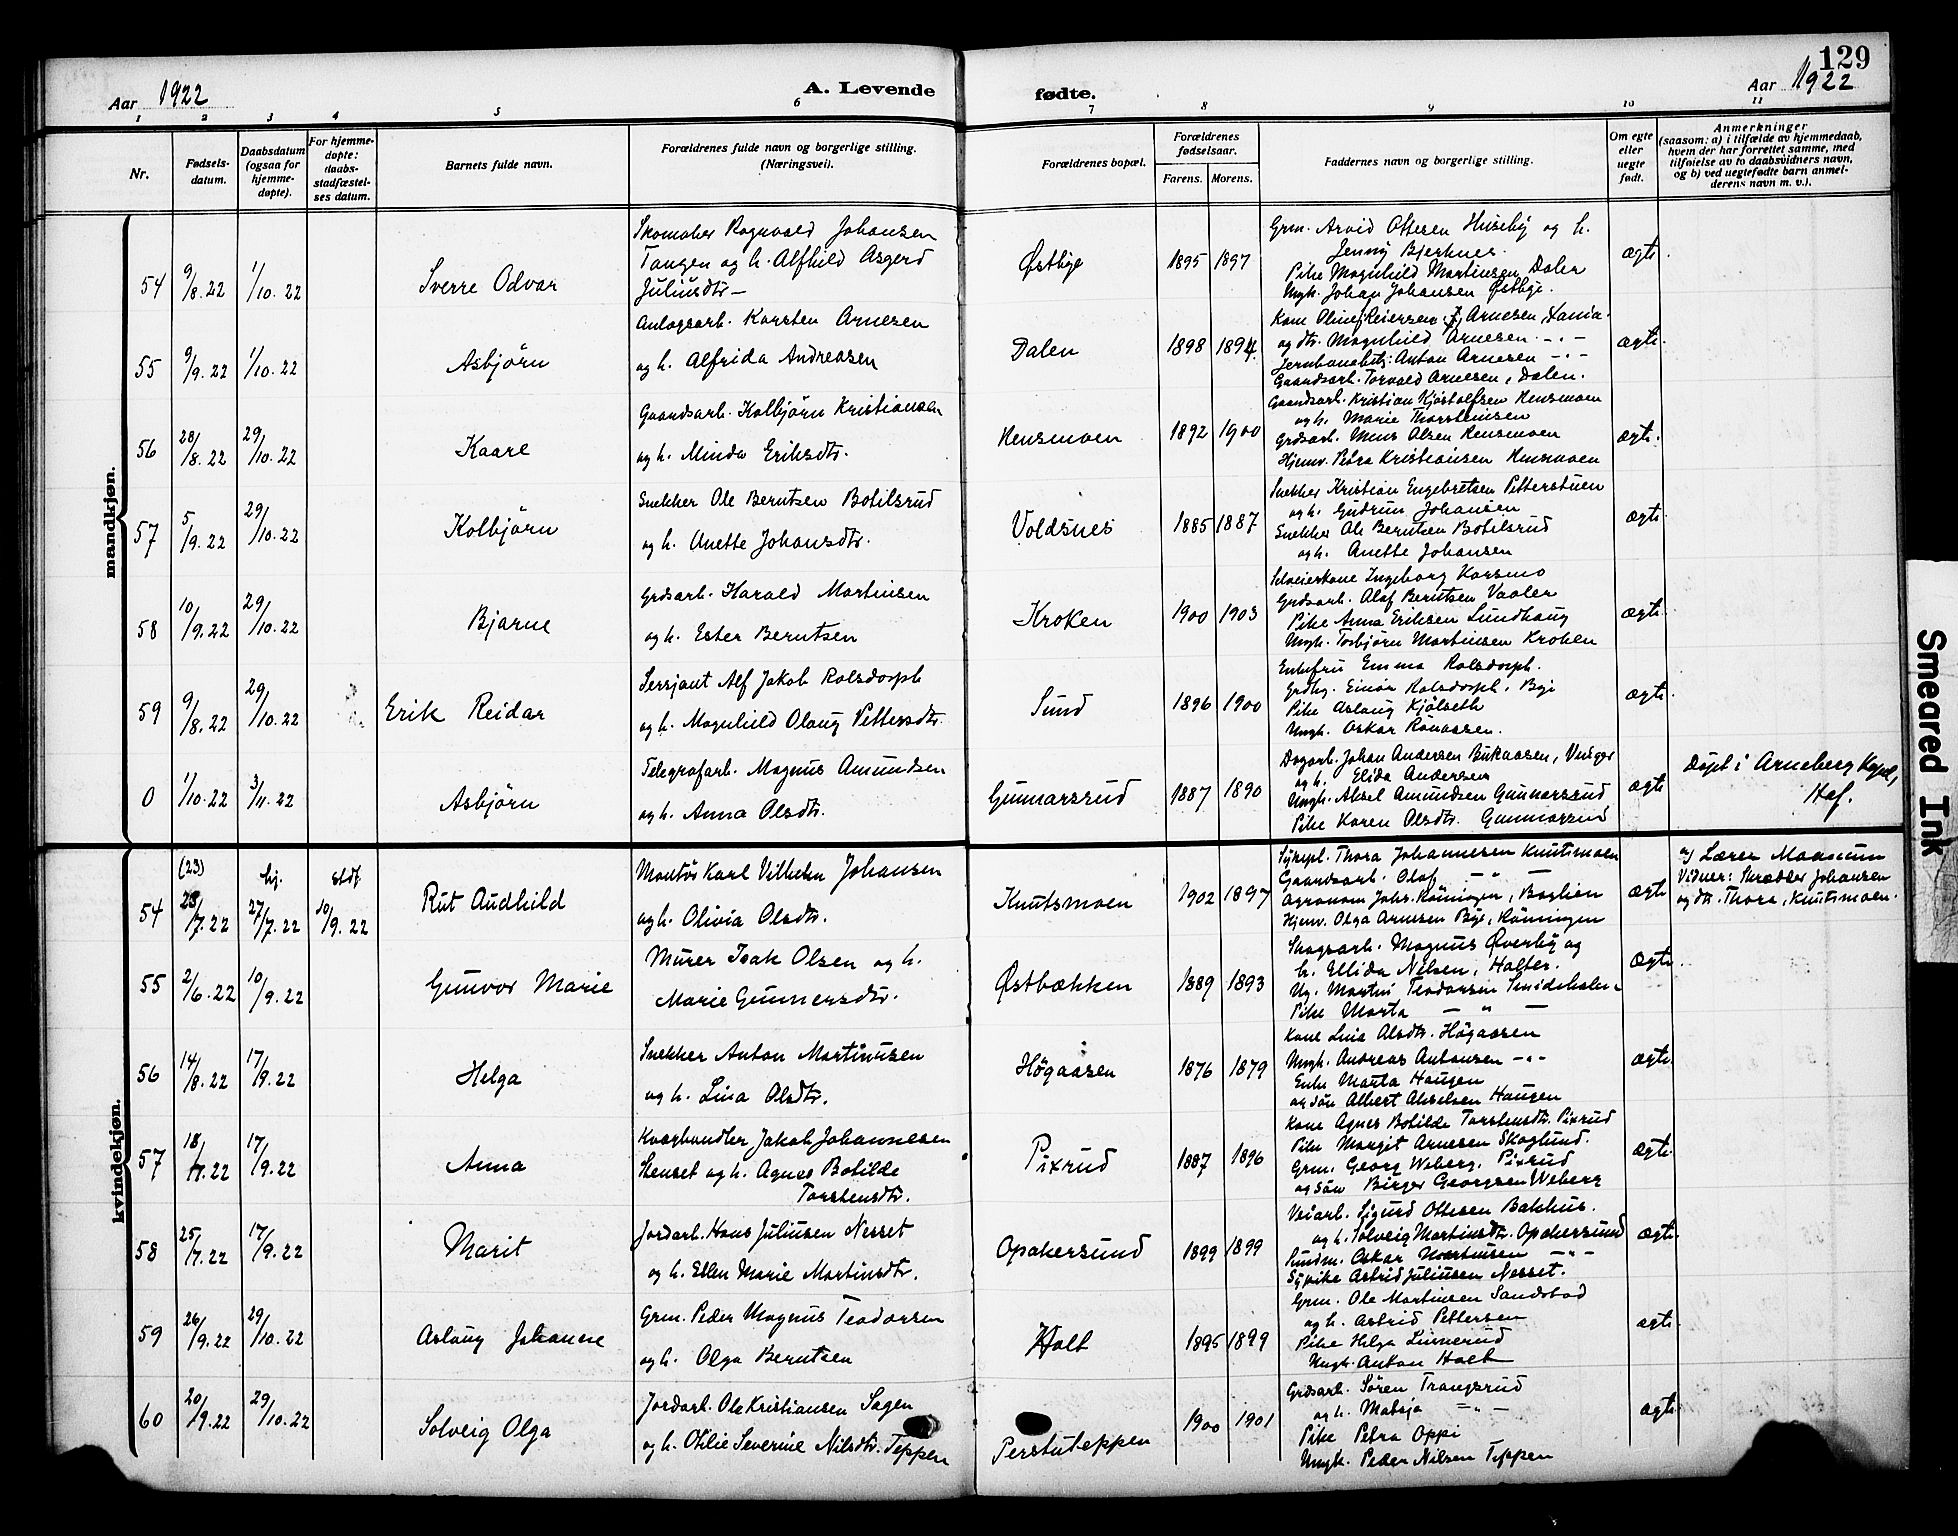 129
Aar 1922
A. Levende fødte.
Aar 1922
1 2 3 4 5 6 7 8 9 10 11
Nr.
Fødsels-
datum.
Daabsdatum
(ogsaa for
hjemme-
døpte).
For hjemme-
døpte:
daabs-
stadfæstel-
ses datum.
Barnets fulde navn.
Forældrenes fulde navn og borgerlige stilling.
(Næringsvei).
Forældrenes bopæl.
Forældrenes
fødselsaar.
Farens. Morens.
Faddernes navn og borgerlige stilling.
Om egte
eller
uegte
født.
Anmerkninger
(saasom: a) i tilfælde av hjemmedaab,
hvem der har forrettet samme, med
tilføielse av to daabsvidners navn,
og b) ved uegtefødte barn anmel-
derens navn m. v.).
mandkjøn.
54 9/8.22 1/10.22 Sverre Odvar
Skomaker Ragnvald Johansen
Tangen og h. Alfhild Asgerd
Juliusdtr
Østbye 1895 1897
Grm. Arvid Ottesen Huseby og h.
Jenny Bjerknes
Pike Magnhild Martinsen Dalen
Ungk. Johan Johansen Østbye.
ægte.
55 9/9.22 1/10.22 Asbjörn
Anlagsarb. Karsten Arnesen
og h. Alfrida Andreasen
Dalen 1898 1894
og dtr. Magnhild Arnesen -"-
Jernbanebetj. Anton Arnesen -"-
Gaardsarb. Torvald Arnesen, Dalen.
ægte.
56 28/8.22 29/10.22 Kaare
Gaardsarb. Kolbjörn Kristiansen
og h. Minda Eriksdtr.
Hensmoen 1892 1900
Gaardsarb. Kristian Kjöstolfsen Hensmoen
og h. Marie Thorsteinsen
Grdsarb. Mons Olsen Hensmoen
Hjemv. Petra Kristiansen Hensmoen
ægte.
57 5/9.22 29/10.22 Kolbjörn
Snekker Ole Berntsen Botilsrud
og h. Anette Johansdtr.
Voldsnes 1885 1887
Snekker Kristian Engebretsen Petterstuen
og h. Gudrun Johansen
Snekker Ole Berntsen Botilsrud
og h. Anette Johansen
ægte
58 10/9.22 29/10.22 Bjarne
Grdsarb. Harald Martinsen
og h. Ester Berntsen
Kroken 1900 1903
Selveierkone Ingeborg Korsmo
Grdsarb. Olaf Berntsen Vaaler
Pike Anna Eriksen Lundhaug
Ungk. Torbjörn Martinsen Kroken
ægte.
59 9/8.22 29/10.22 Erik Reidar
Sersjant Alf Jakob Rolsdorph
og h. Magnhild Olaug Pettersdtr.
Sund 1896 1900
Enkefru Emma Rolsdorph.
Grdbr. Einar Rolsdorph, Bye
Pike Aslaug Kjölseth
Ungk. Oskar Rönaasen.
ægte.
0 1/10.22 3/11.22 Asbjörn
Telegrafarb. Magnus Amundsen
og h. Anna Olsdtr.
Gunnarsrud 1887 1890
og h. Elida Andersen
Ungk. Aksel Amundsen Gunnarsrud
Pike Karen Olsdtr. Gunnarsrud
ægte
Döpt i Arneberg Kapel,
Hof.
kvindekjøn.
54 (23) 23/7.22 hj. 27/7.22 stdf. 10/9.22 Rut Audhild
Montör Karl Vilhelm Johansen
og h. Olivia Olsdtr.
Knutsmoen 1902 1897
Sykepl. Thora Johannesen Knutsmoen
Gaardsarb. Olaf -"-
Agronom Johs. Röningen, Baglien
Hjemv. Olga Arnesen Bye, Röningen
ægte.
a) Lærer Maanum
Vidner: Skrædder Johansen
og dtr. Thora, Knutsmoen.
55 2/6.22 10/9.22 Gunvor Marie
Murer Isak Olsen og h.
Marie Gunnersdtr.
Østbækken 1889 1893
Skogsarb. Magnus Överby og
h. Ellida Nilsen, Halter.
Pike Marta -"-
ægte.
56 14/8.22 17/9.22 Helga
Snekker Anton Martinusen
og h. Lina Olsdtr.
Högaasen 1876 1879
Kone Lina Olsdtr. Högaasen
Ungk. Andreas Antonsen -"-
Enke Marta Haugen
og sön Albert Akselsen Haugen
ægte.
57 18/7.22 17/9.22 Anna
Kvæghandler Jakob Johannesen
Stenset og h. Agnes Botilde
Torstensdtr.
Pixrud 1887 1896
Kone Agnes Botilde Torstensdtr. Pixrud
Pike Margit Arnesen Skoglund.
Grm. Georg Weberg, Pixrud
og sön Birger Georgsen Weberg
ægte.
58 25/7.22 17/9.22 Marit
Jordarb. Hans Juliusen Nesset
og h. Ellen Marie Martinsdtr.
Opakersund 1899 1899
Veiarb. Sigurd Ottesen Bakhus.
og h. Solveig Martinsdtr. Opakersund
Sundm. Oskar Martinsen -"-
Sypike Astrid Juliusen Nesset.
ægte.
59 26/9.22 29/10.22 Aslaug Johanne
Grm. Peder Magnus Teodorsen
og h. Olga Berntsen
Holt 1895 1899
Grm. Ole Martinsen Sandstad
og h. Astrid Pettersen
Pike Helga Linnerud
Ungk. Anton Holt
ægte.
60 20/9.22 29/10.22 Solveig Olga
Jordarb. Ole Kristiansen Sagen
og h. Otilie Severine Nilsdtr. Teppen
Perstuteppen 1900 1901
Grdsarb. Sören Trangsrud
og h. Matsja -"-
Pike Petra Oppi
Ungk. Peder Nilsen Teppen
ægte.
Smeared Ink